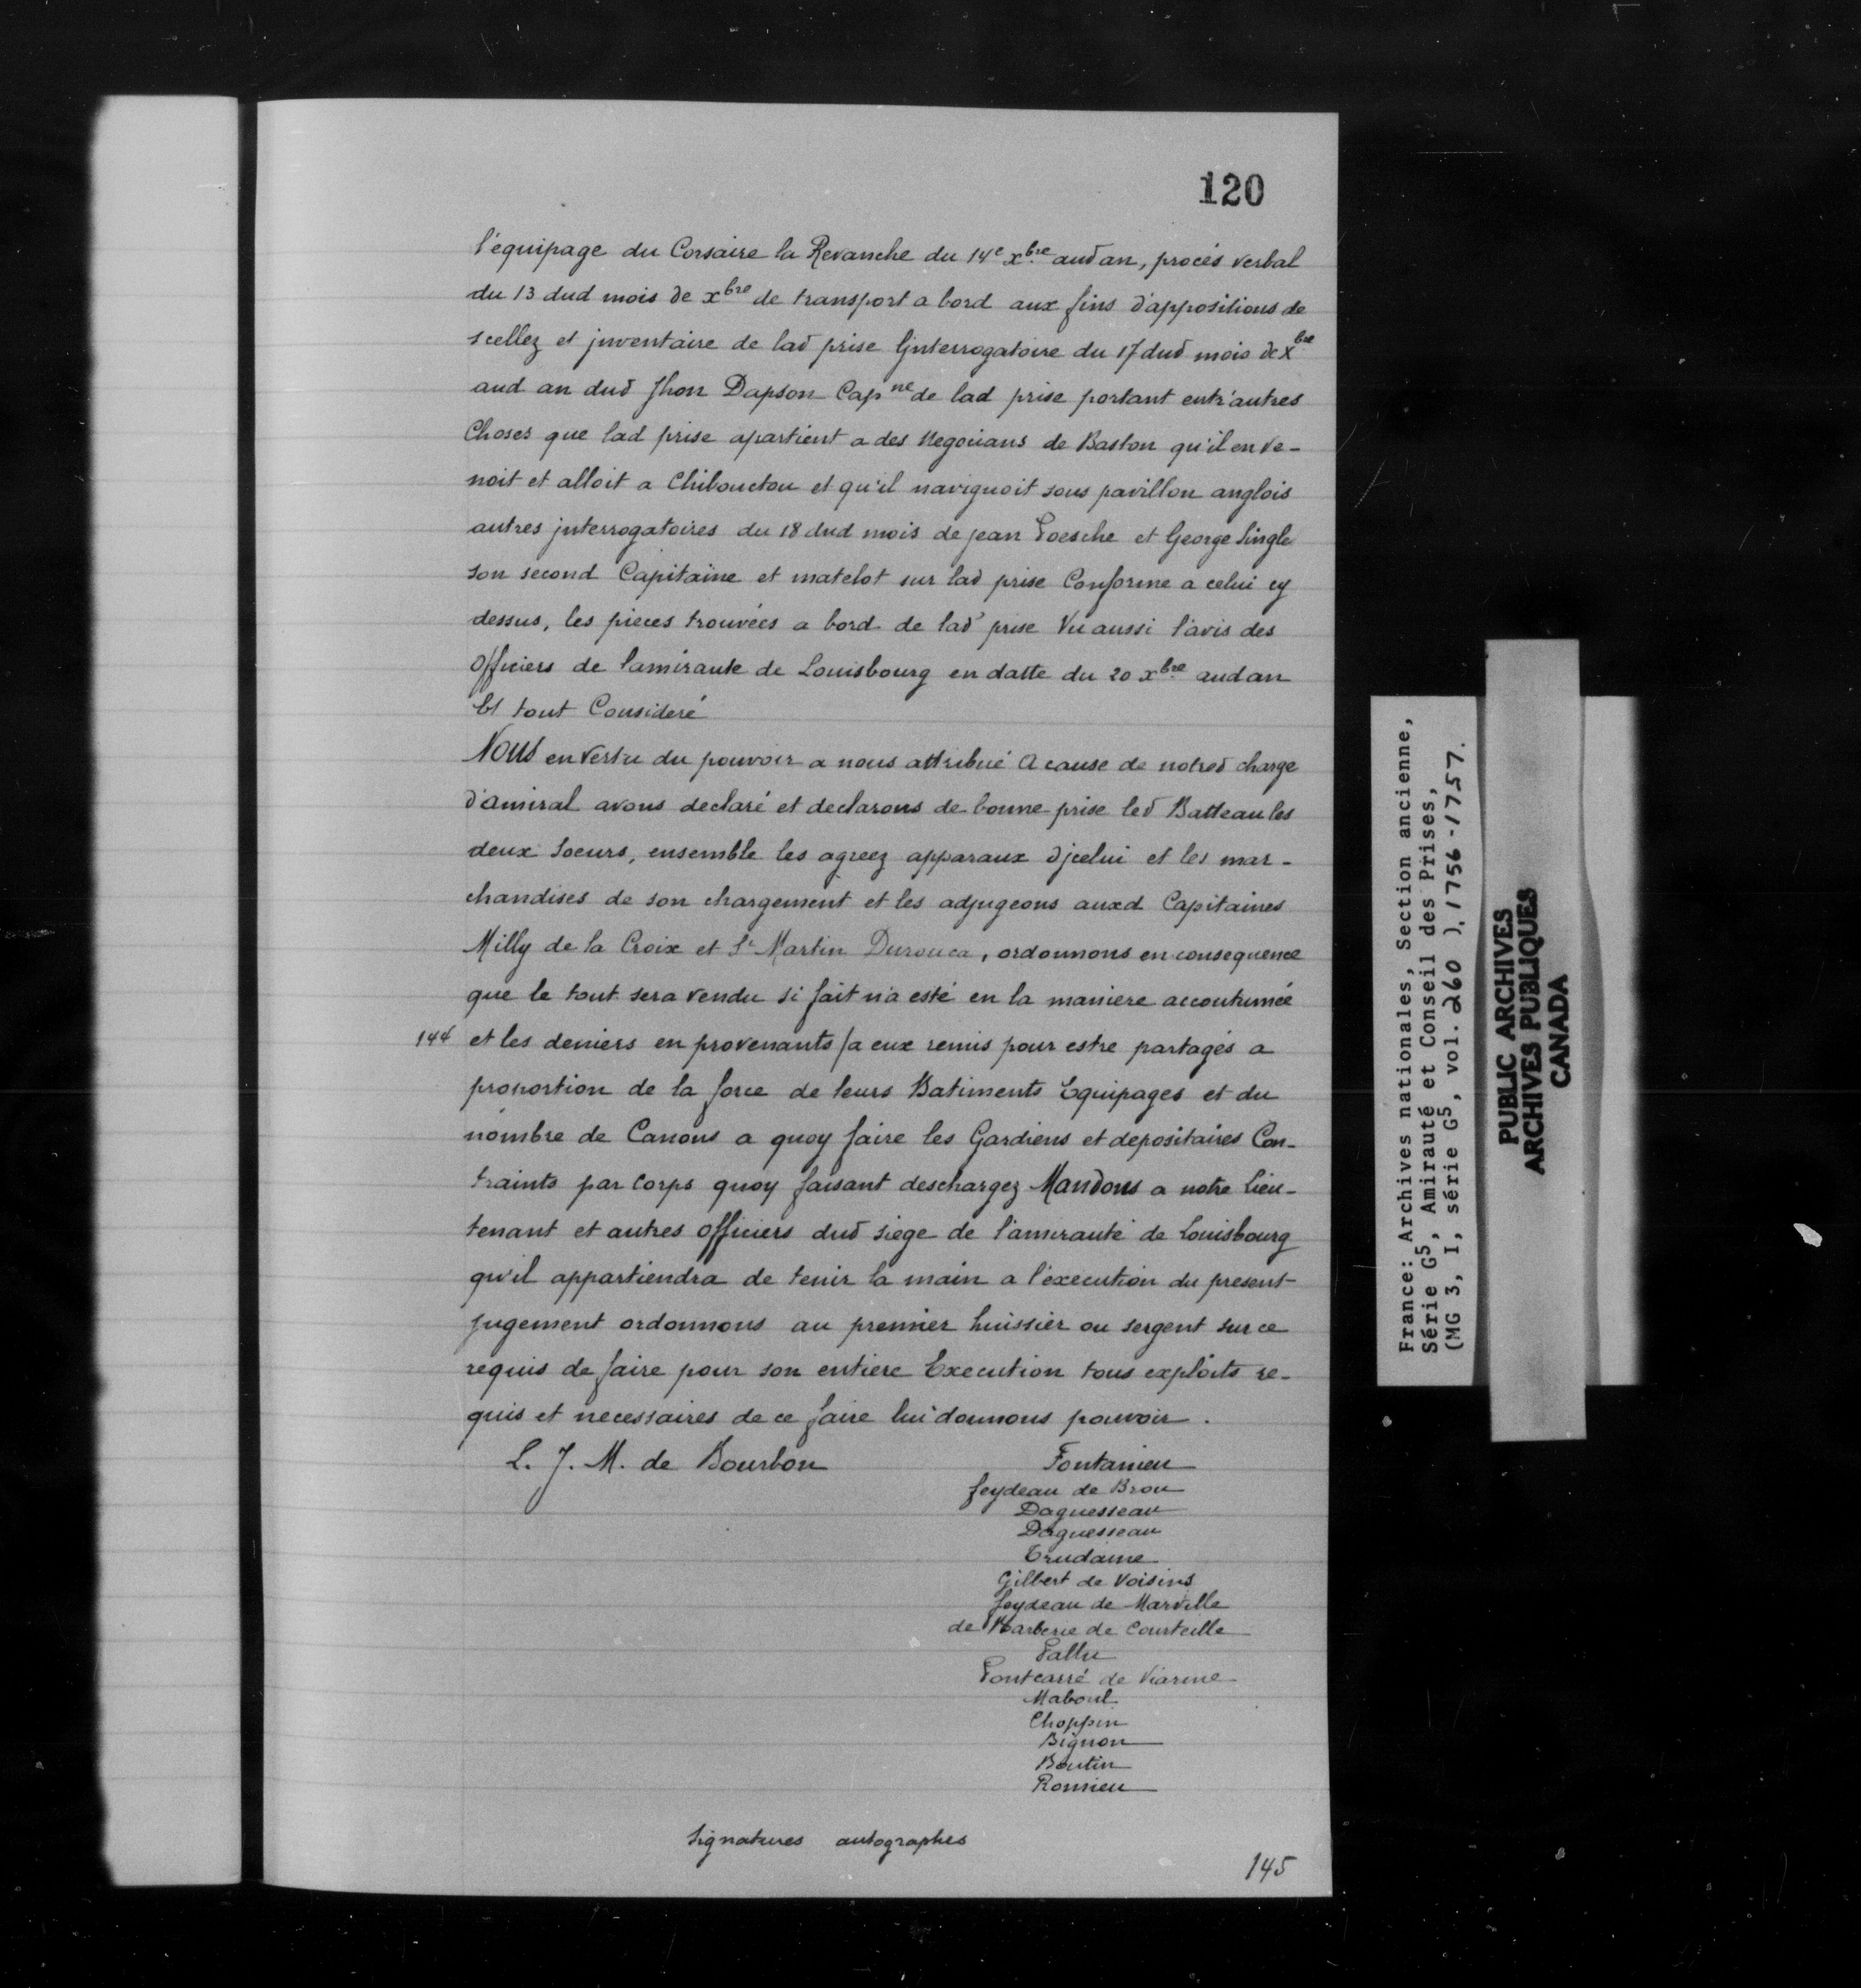 120
l'équipage du Corsaire la Revanche du 14e xbre aud an, procès verbal
du 13 dud mois de xbre de transport a bord aux fins d'appositions de
scellez et jnventaire de lad prise Ljnterrogatoire du 17 dud mois de xbre
aud an dud Jhon Dapson Capne de lad prise portant entr'autres
Choses que lad prise apartient a des Negocians de Baston qu'il en ve-
noit et alloit a Chibouctou et qu'il navignoit sous pavillon anglois
autres jnterrogatoires du 18 dud mois de jean Poesche et George Single
son second Capitaine et matelot sur lad prise Conforme a celui cy
dessus, les pieces trouvées a bord de lad prise Vu aussi l'avis des
Officiers de lamiraute de Louisbourg en datte du 20 xbre aud an
Et tout Consideré
Nous en vertu du pouvoir a nous attribué A cause de notred charge
d'amiral avons declaré et declarons de bonne prise led Batteau les
deux Soeurs, ensemble les agreez apparaux djcelui et les mar-
chandises de son chargement et les adjugeons auxd Capitaines
Milly de la Croix et St Martin Durouca, ordonnons en consequence
que le tout sera vendu si fait n'a esté en la maniere accoutumée
144 et les deniers en provenants /a eux remis pour estre partagés a
proportion de la force de leurs Batiments Equipages et du
nombre de Canons a quoy faire les Gardiens et depositaires Con-
traints par Corps quoy faisant deschargez Mandons a notre Lieu-
tenant et autres officiers dud siege de l'amirauté de Louisbourg
qu'il appartiendra de tenir la main a l'éxecution du present
jugement ordonnons au premier huissier ou sergent sur ce
requis de faire pour son entiere Execution tous exploits re-
quis et necessaires de ce faire lui donnons pouvoir.
L. J. M. de Bourbon
Fontanieu
feydeau de Brou
Daguesseau
Daguesseau
Trudaine
Gilbert de Voisins
feydeau de Marville
de Barberie de Courteille
Pallu
Pontcarré de Viarme
Maboul
Choppin
Bignon
Boutin
Romieu
Signatures autographes
145
France: Archives nationales, Section ancienne,
Série G5, Amirauté et Conseil des Prises,
(MG 3, I, série G5, vol. 260 ), 1756-1757.
PUBLIC ARCHIVES
ARCHIVES PUBLIQUES
CANADA